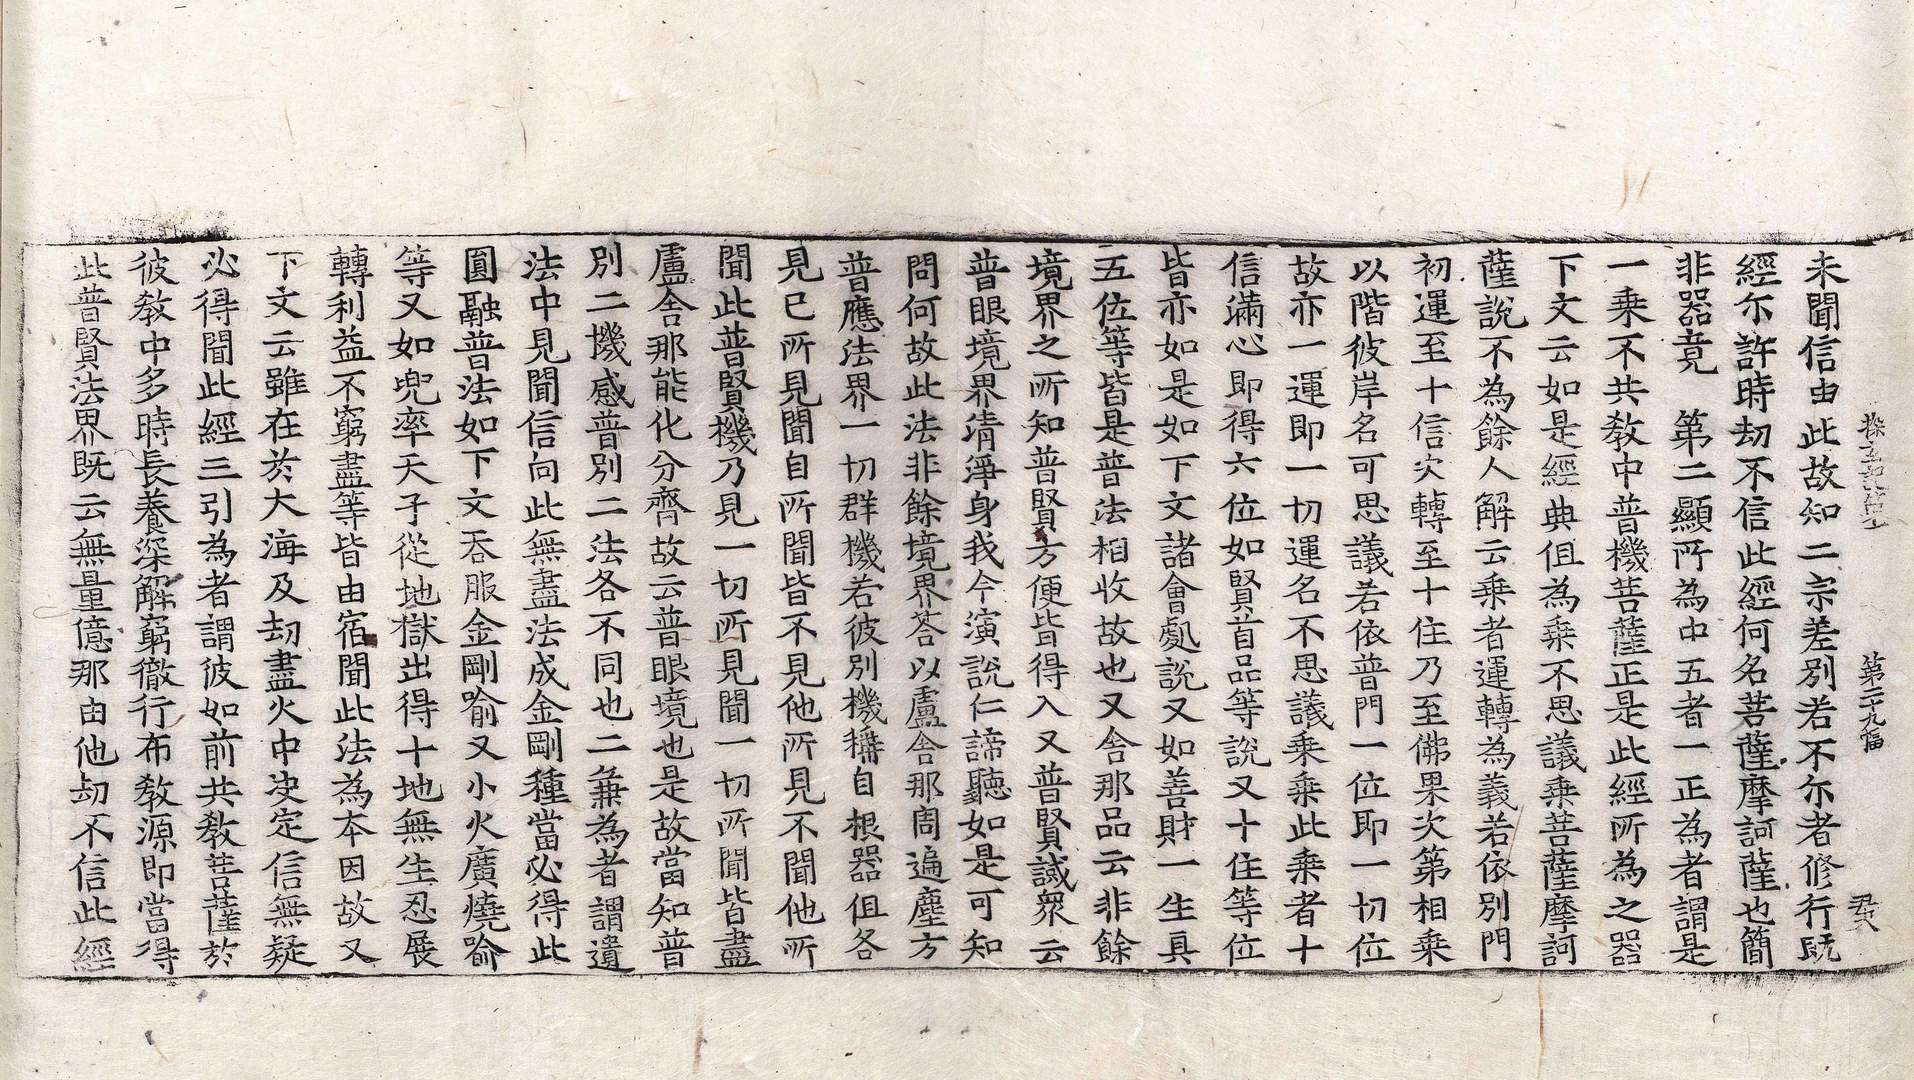 探玄記第一 第二十九幅 君 六
未聞信由此故知二宗差別若不尒者修行旣
經尒許時劫不信此經何名菩薩摩訶薩也簡
非器竟 第二顯所為中五者一正為者謂是
一乘不共教中普機菩薩正是此經所為之器
下文云如是經典但為乘不思議乘菩薩摩訶
薩說不為餘人解云乘者運轉為義若依別門
初運至十信次轉至十住乃至佛果次第相乘
以階彼岸名可思議若依普門一位即一切位
故亦一運即一切運名不思議乘乘此乘者十
信滿心即得六位如賢首品等說又十住等位
皆亦如是如下文諸會處說又如善財一生具
五位等皆是普法相收故也又舍那品云非餘
境界之所知普賢方便皆得入又普賢誡眾云
普眼境界清淨身我今演說仁諦聽如是可知
問何故此法非餘境界答以盧舍那周遍塵方
普應法界一切群機若彼別機稱自根器但各
見已所見聞自所聞皆不見他所見不聞他所
聞此普賢機乃見一切所見聞一切所聞皆盡
盧舍那能化分齊故云普眼境也是故當知普
別二機感普別二法各不同也二兼為者謂遺
法中見聞信向此無盡法成金剛種當必得此
圓融普法如下文吞服金剛喻又小火廣燒喻
等又如兜率天子從地獄出得十地無生忍展
轉利益不窮盡等皆由宿聞此法為本因故又
下文云雖在於大海及劫盡火中決定信無疑
必得聞此經三引為者謂彼如前共教菩薩於
彼教中多時長養深解窮徹行布教源即當得
此普賢法界既云無量億那由他劫不信此經